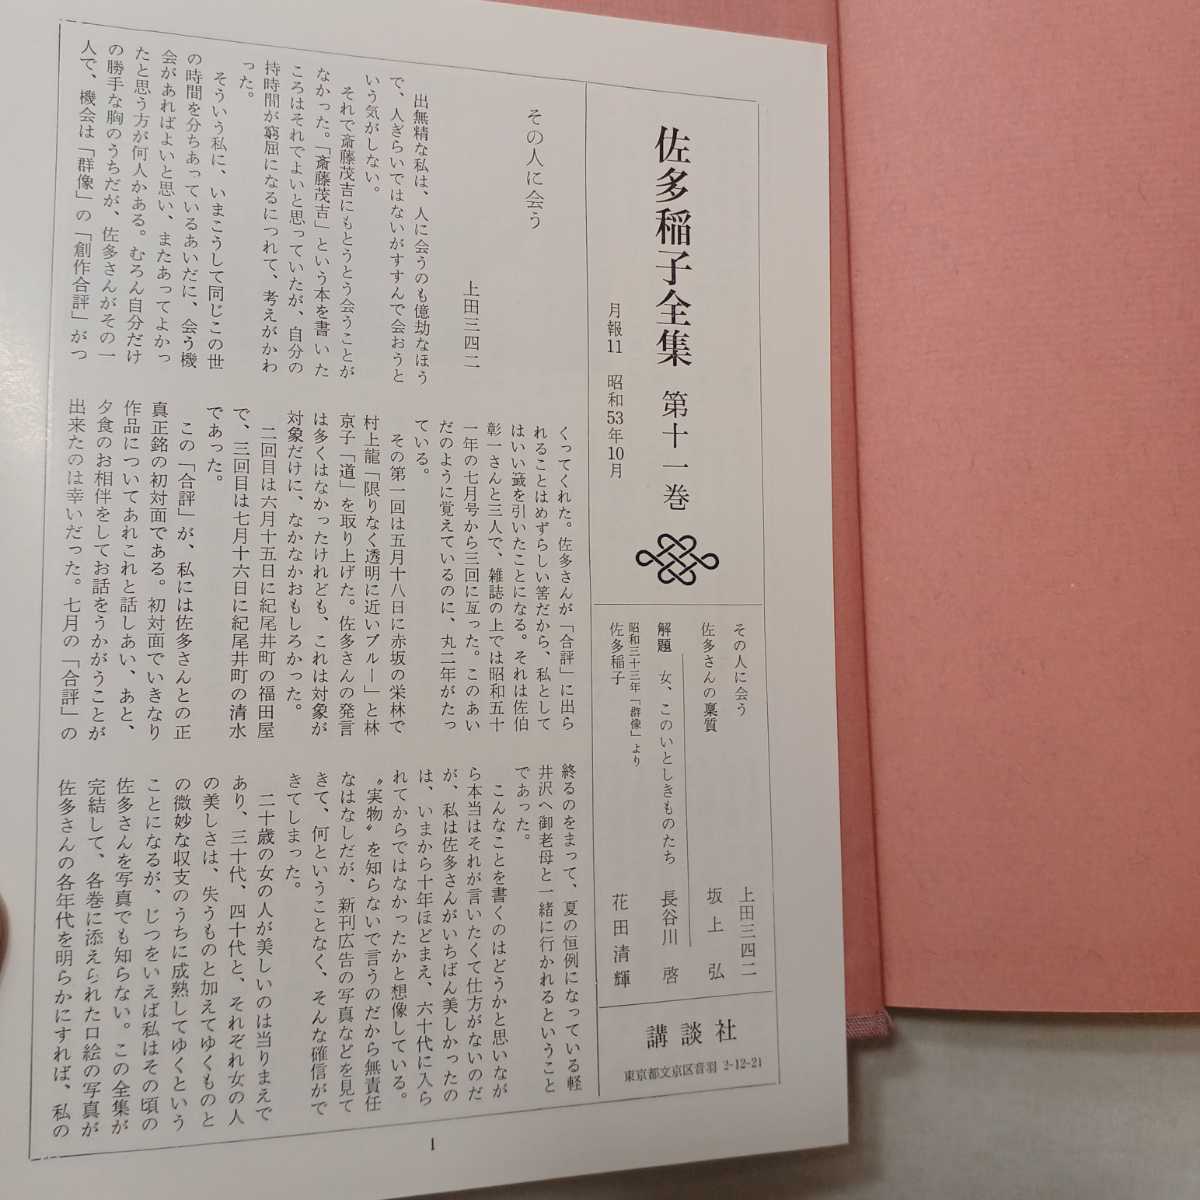 佐多稲子全集 第十一巻
月報11 昭和53年10月
その人に会う 上田三四二
佐多さんの稟質 坂上 弘
解題 女、このいとしきものたち 長谷川 啓
昭和三十三年「群像」より
佐多稲子 花田清輝
講談社
東京都文京区音羽 2-12-21
その人に会う
上田三四二
出無精な私は、人に会うのも億劫なほう
で、人ぎらいではないがすすんで会おうと
いう気がしない。
それで斎藤茂吉にもとうとう会うことが
なかった。「斎藤茂吉」という本を書いた
ころはそれでよいと思っていたが、自分の
持時間が窮屈になるにつれて、考えがかわ
った。
そういう私に、いまこうして同じこの世
の時間を分ちあっているあいだに、会う機
会があればよいと思い、またあってよかっ
たと思う方が何人かある。むろん自分だけ
の勝手な胸のうちだが、佐多さんがその一
人で、機会は「群像」の「創作合評」がつ
くってくれた。佐多さんが「合評」に出ら
れることはめずらしい筈だから、私として
はいい籤を引いたことになる。それは佐伯
彰一さんと三人で、雑誌の上では昭和五十
一年の七月号から三回に亙った。このあい
だのように覚えているのに、丸二年がたっ
ている。
その第一回は五月十八日に赤坂の栄林で
村上龍「限りなく透明に近いブルー」と林
京子「道」を取り上げた。佐多さんの発言
は多くはなかったけれども、これは対象が
対象だけに、なかなかおもしろかった。
二回目は六月十五日に紀尾井町の福田屋
で、三回目は七月十六日に紀尾井町の清水
であった。
この「合評」が、私には佐多さんとの正
真正銘の初対面である。初対面でいきなり
作品についてあれこれと話しあい、あと、
夕食のお相伴をしてお話をうかがうことが
出来たのは幸いだった。七月の「合評」の
終るのをまって、夏の恒例になっている軽
井沢へ御老母と一緒に行かれるということ
であった。
こんなことを書くのはどうかと思いなが
ら本当はそれが言いたくて仕方がないのだ
が、私は佐多さんがいちばん美しかったの
は、いまから十年ほどまえ、六十代に入ら
れてからではなかったかと想像している。
〝実物〟を知らないで言うのだから無責任
なはなしだが、新刊広告の写真などを見て
きて、何ということなく、そんな確信がで
きてしまった。
二十歳の女の人が美しいのは当りまえで
あり、三十代、四十代と、それぞれ女の人
の美しさは、失うものと加えてゆくものと
の微妙な収支のうちに成熟してゆくという
ことになるが、じつをいえば私はその頃の
佐多さんを写真でも知らない。この全集が
完結して、各巻に添えられた口絵の写真が
佐多さんの各年代を明らかにすれば、私の
1